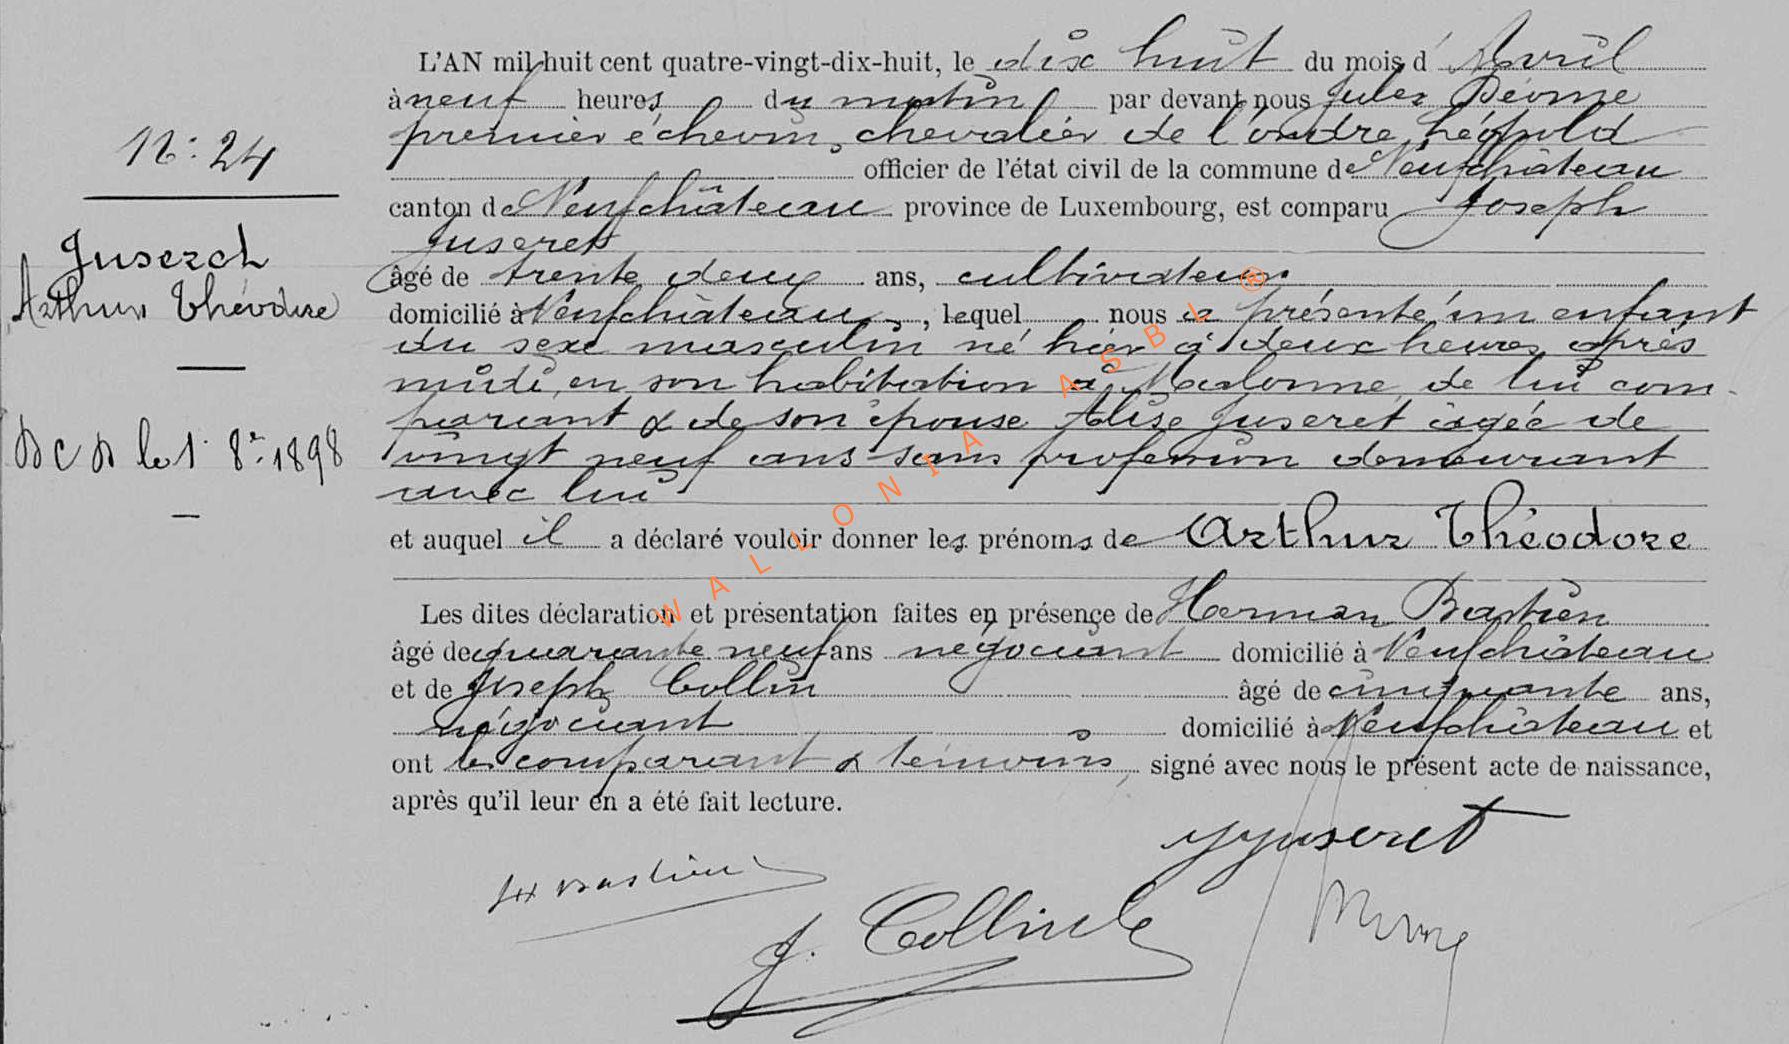 N: 24
Juserct
Arthur Théodore
DCD le 1 8re 1898
L'AN mil huit cent quatre-vingt-dix-huit, le dix huit du mois d'Avril
à neuf heures du matin par devant nous Jules
premier échevin, chevalier de l'ordre Léopold
officier de l'état civil de la commune de Neufchâteau
canton de Neufchâteau province de Luxembourg, est comparu Joseph
Juseret
âgé de trente deux ans, cultivateur
domicilié à Neufchâteau, lequel nous a présenté un enfant
du sexe masculin né hier à deux heures après
midi, en son habitation à Malonne, de lui com-
parant & de son épouse Alise Juseret âgée de
vingt neuf ans sans profession demeurant
avec lui
et auquel il a déclaré vouloir donner les prénoms de Arthur Théodore
Les dites déclaration et présentation faites en présence de Herman Bastien
âgé de quarante neuf ans négociant domicilié à Neufchâteau
et de Joseph Collin âgé de cinquante ans,
négociant domicilié à Neufchâteau et
ont les comparant & témoins, signé avec nous le présent acte de naissance,
après qu'il leur en a été fait lecture.
JJuseret
H Bastien
J. Collin
WALLONIA ASBL ®